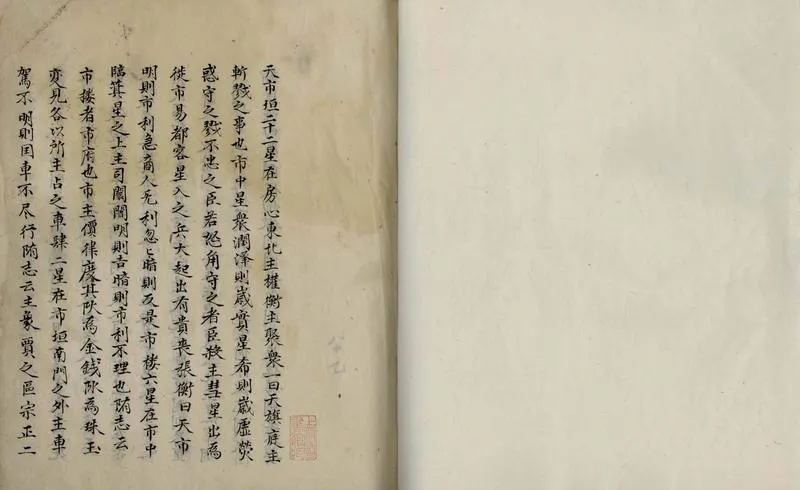 天市垣二十二星在房心東北主權衡主聚衆一曰天旗庭主
斬戮之事也市中星衆潤澤則歲實星希則歲虛熒
惑守之戮不忠之臣若怒角守之者臣殺主彗星出爲
徙市易都客星入之兵大起出有貴丧張衡曰天市
明則市利急商人无利忽匕暗則反是市楼六星在市中
臨箕星之上主司闤闠明則吉暗則市利不理也隋志云
市楼者市府也市主價律度其陽為金錢陰為珠玉
变見各以所主占之車肆二星在市垣南門之外主車
駕不明則国車不尽行隋志云主衆賈之區宗正二